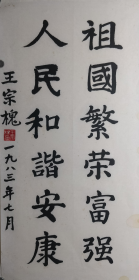 祖國繁荣富强
人民和諧安康
王宗槐
一九八三年七月